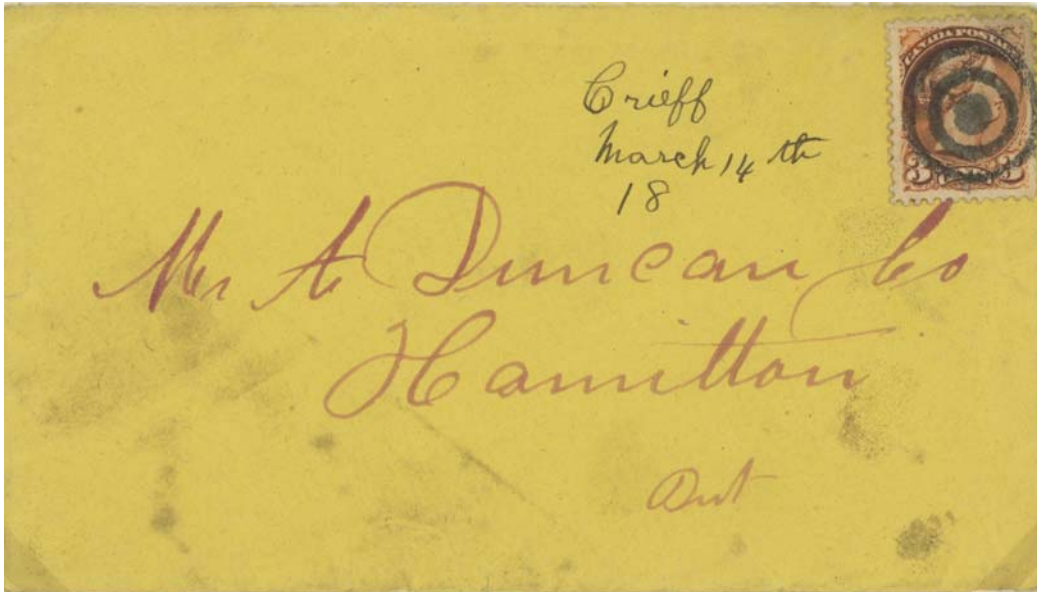 Crieff
March 14th
18
CANADA POSTAGE
3 3
Mr A Duncan Co
Hamilton
Ont